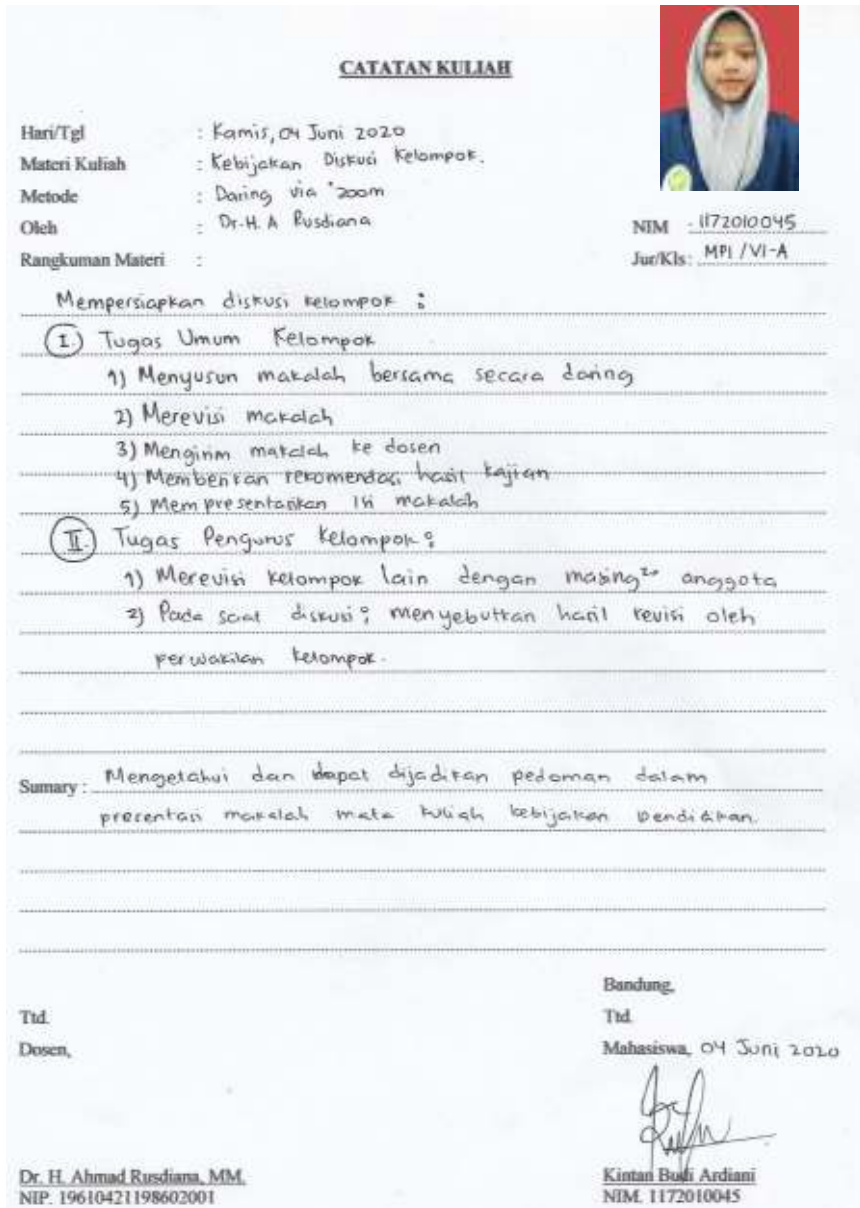 CATATAN KULIAH
Hari/Tgl : Kamis, 04 Juni 2020
Materi Kuliah : Kebijakan Diskusi Kelompok.
Metode : Daring via zoom
Oleh : Dr. H. A Rusdiana
NIM : 1172010045
Rangkuman Materi :
Jur/Kls : MPI / VI-A
Mempersiapkan diskusi kelompok :
I. Tugas Umum Kelompok
1) Menyusun makalah bersama secara daring
2) Merevisi makalah
3) Mengirim makalah ke dosen
4) Memberikan rekomendasi hasil kajian
5) Mempresentasikan isi makalah
II. Tugas Pengurus Kelompok :
1) Merevisi kelompok lain dengan masing² anggota
2) Pada saat diskusi : menyebutkan hasil revisi oleh
perwakilan kelompok.
Sumary : Mengetahui dan dapat dijadikan pedoman dalam
presentasi makalah mata kuliah kebijakan pendidikan.
Bandung,
Ttd.
Ttd.
Dosen,
Mahasiswa, 04 Juni 2020
Dr. H. Ahmad Rusdiana, MM.
NIP. 19610421198602001
Kintan Budi Ardiani
NIM. 1172010045